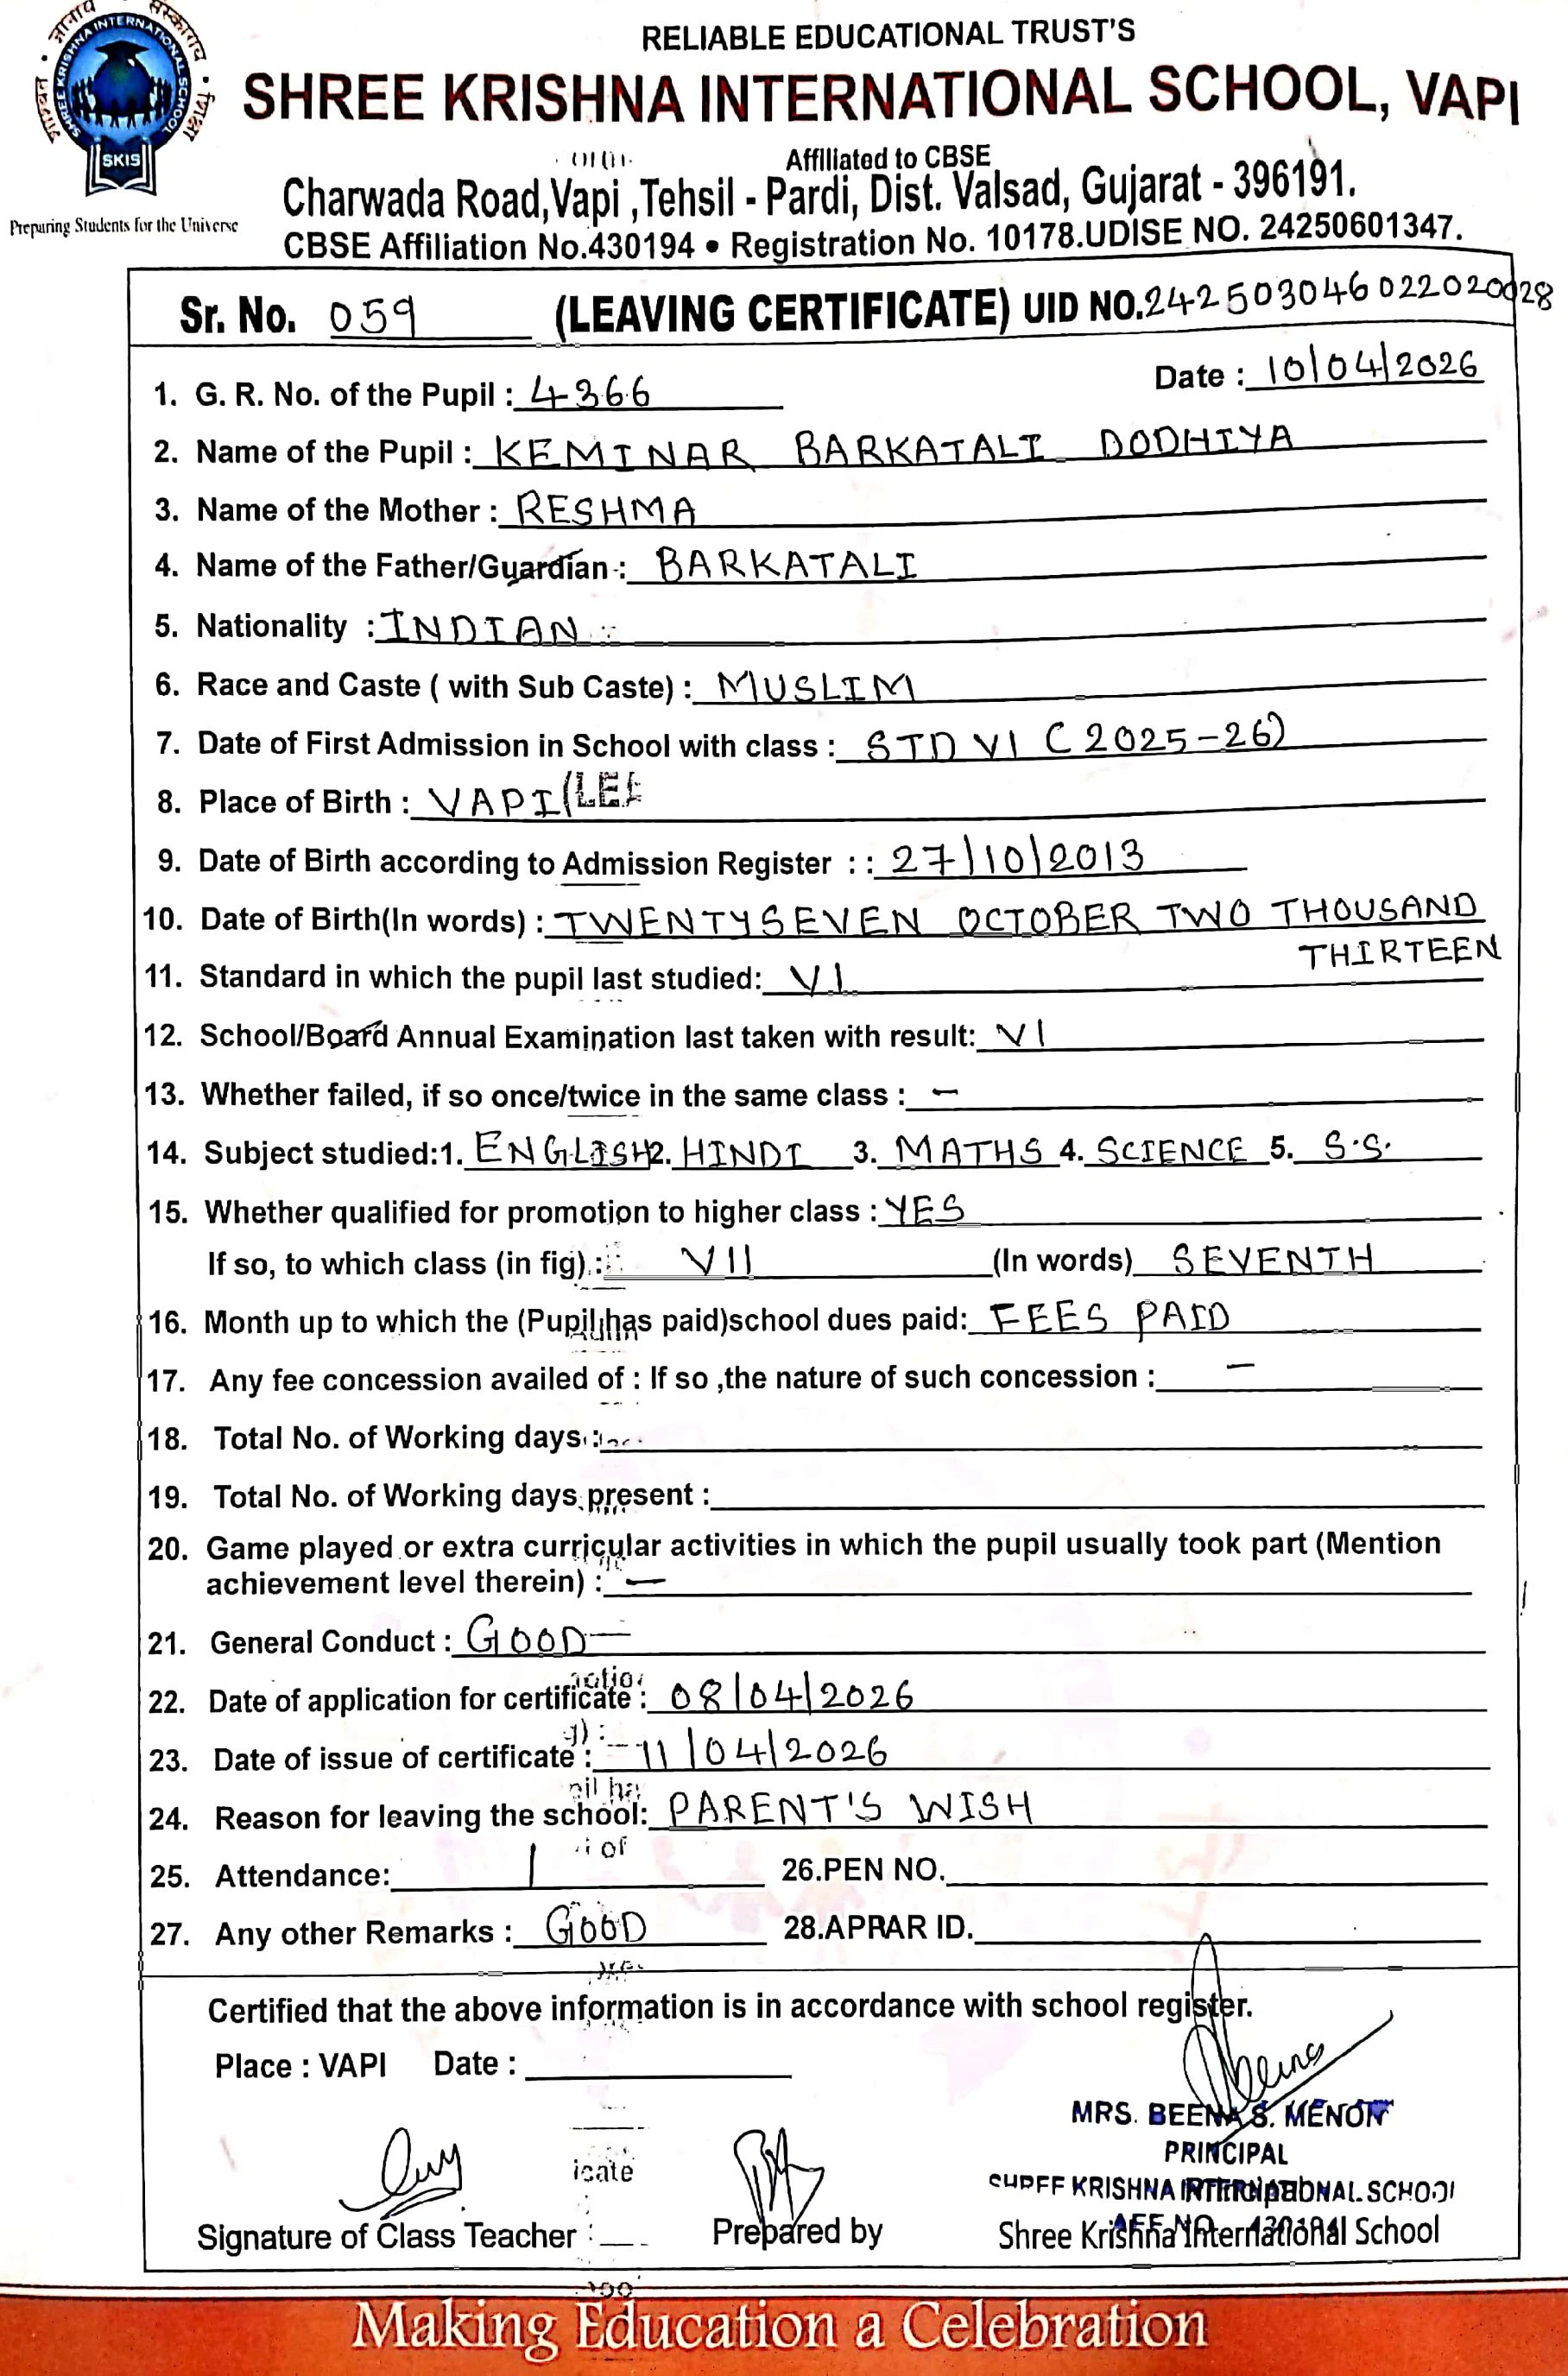 RELIABLE EDUCATIONAL TRUST'S
SHREE KRISHNA INTERNATIONAL SCHOOL, VAPI
SHREE KRISHNA INTERNATIONAL SCHOOL
SKIS
Preparing Students for the Universe
Affiliated to CBSE
Charwada Road,Vapi ,Tehsil - Pardi, Dist. Valsad, Gujarat - 396191.
CBSE Affiliation No.430194 • Registration No. 10178.UDISE NO. 24250601347.
Sr. No. 059 (LEAVING CERTIFICATE) UID NO.242503046022020028
Date : 10/04/2026
1. G. R. No. of the Pupil : 4366
2. Name of the Pupil : KEMINAR BARKATALI DODHIYA
3. Name of the Mother : RESHMA
4. Name of the Father/Guardian : BARKATALI
5. Nationality : INDIAN
6. Race and Caste ( with Sub Caste) : MUSLIM
7. Date of First Admission in School with class : STD VI (2025-26)
8. Place of Birth : VAPI
9. Date of Birth according to Admission Register : : 27/10/2013
10. Date of Birth(In words) : TWENTYSEVEN OCTOBER TWO THOUSAND
THIRTEEN
11. Standard in which the pupil last studied: VI
12. School/Board Annual Examination last taken with result: VI
13. Whether failed, if so once/twice in the same class : —
14. Subject studied:1. ENGLISH 2. HINDI 3. MATHS 4. SCIENCE 5. S.S.
15. Whether qualified for promotion to higher class : YES
If so, to which class (in fig) : VII (In words) SEVENTH
16. Month up to which the (Pupil has paid)school dues paid: FEES PAID
17. Any fee concession availed of : If so ,the nature of such concession : —
18. Total No. of Working days :
19. Total No. of Working days present :
20. Game played or extra curricular activities in which the pupil usually took part (Mention
achievement level therein) : —
21. General Conduct : GOOD
22. Date of application for certificate : 08/04/2026
23. Date of issue of certificate : 11/04/2026
24. Reason for leaving the school: PARENT'S WISH
25. Attendance: 26.PEN NO.
27. Any other Remarks : GOOD 28.APRAR ID.
Certified that the above information is in accordance with school register.
Place : VAPI Date :
MRS. BEENA S. MENON
PRINCIPAL
SHREE KRISHNA INTERNATIONAL SCHOOL
AFF NO. 430194
Signature of Class Teacher Prepared by Shree Krishna International School
Making Education a Celebration